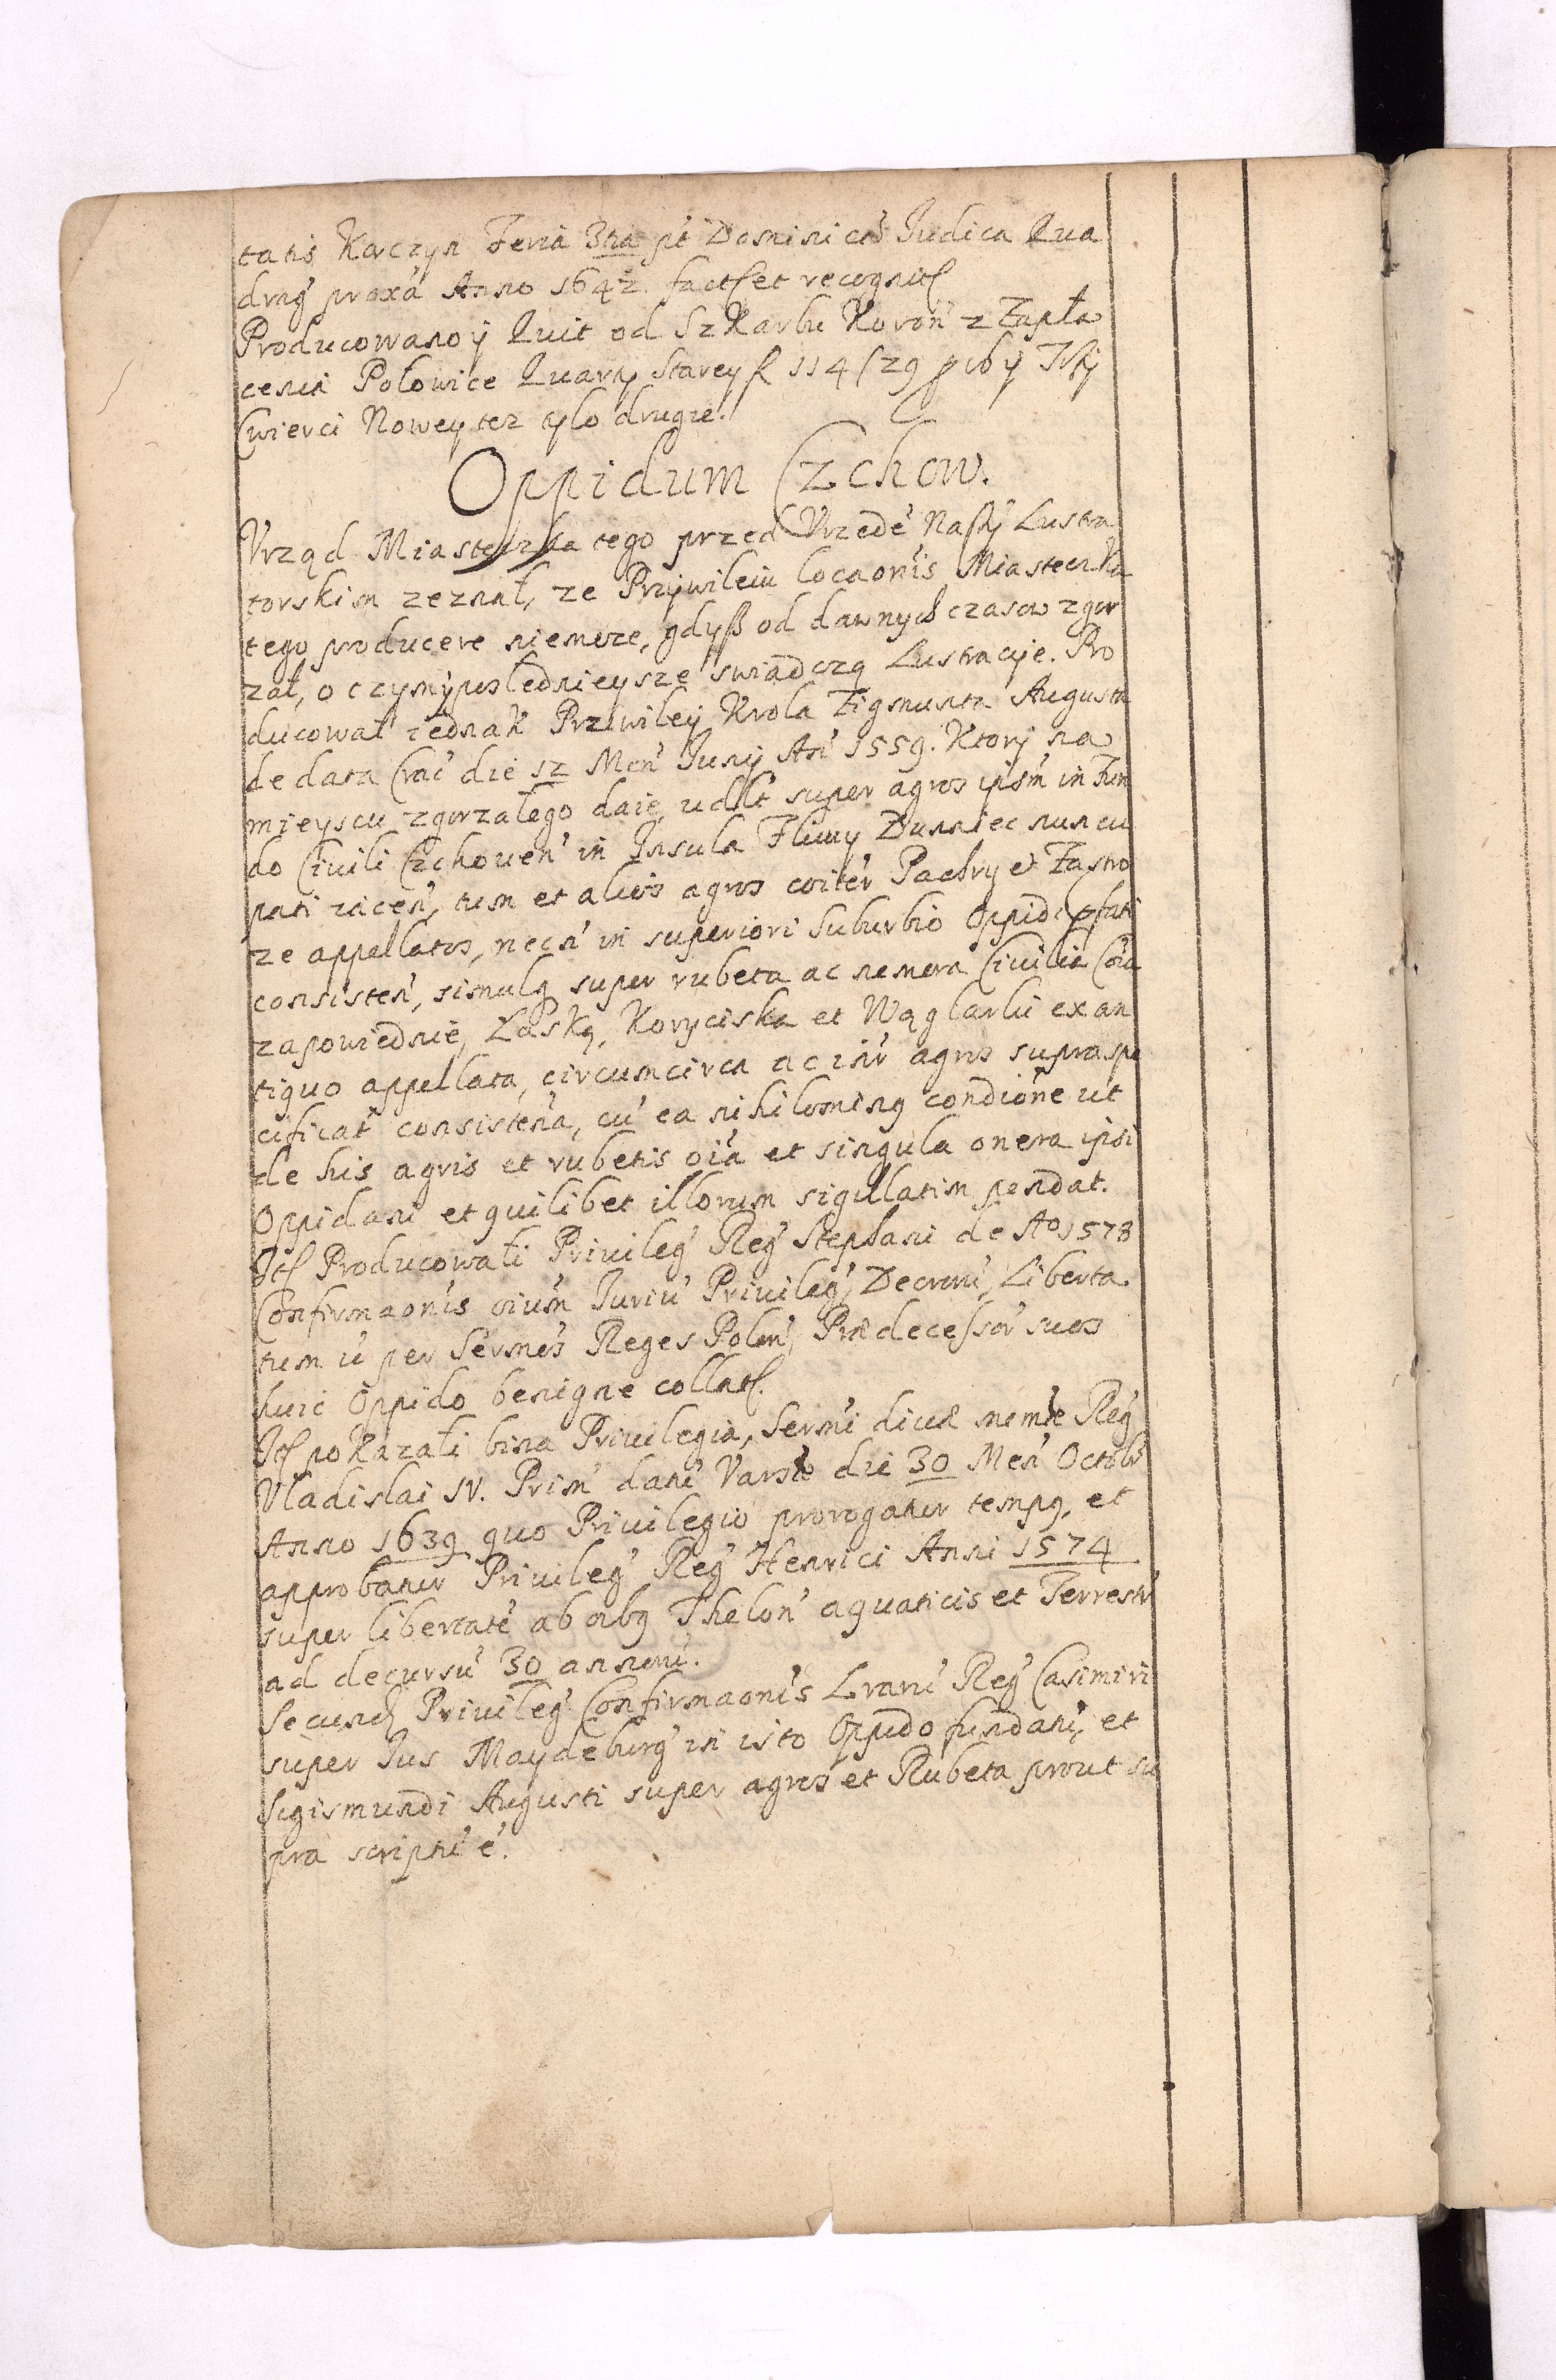 tatis Korczyn Feria 3tia pt Dominicã Judica Qua
drag' proxã Anno 1642. fact et recognit
Producowano ÿ Quit od Szkarbu Koron' z Zapła
cenia Połowice Quarty Starey f 114/29
Cwierci Nowey tez ÿlo drugie.
Oppidum Czchow.
Vrząd Miasteczka tego przed Vrzedẽ Naßÿ Lustra
torskim zeznał, ze Przywileiu locaonis Miasteczka
tego producere niemoze, gdyß od dawnych czasow zgor
zał, o czym ÿ poslednieysze swiadczą Lustracyie. Pro
ducował iednak Przÿwileÿ Krola Zigmunta Augusta
de data Crac' die 12 Men' Junÿ An' 1559. Ktorÿ na
mieyscu zgorzałego daie, vdlt super agros ipsm' in Fun
do Ciuili Czchouen' in Insula Fluuÿ Dunaiec nuncu
pati iacen', tum et alios agros coitèr Pachry et Zastro
ze appellatos, necn' in superiori Suburbio Oppidi pfati
consisten', simulq super rubeta ac nemora Ciuilia Cõia
zapowiednie, Laską, Koryciska et Wąglarki ex an
tiquo appellata, circumcirca ac intr' agros supraspe
cificat' consistena, cũ ea nihilominq condione ut
de his agris et rubetis oiã et singula onera ipsi
Oppidani et quilibet illorum sigillatim pendat.
It Producowali Priuileg' Reg' Stephani de Ao 1578
Confirmaonis oium' Juriũ Priuileg', Decretor', Liberta
tum ũ per Sermos Reges Polon', Prædecessor' suos
huic Oppido benigne collat.
It pokazali bina Priuilegia, Sermi diuæ memæ Reg'
Vladislai IV. Prim' dati' Varsæ die 30 Men' Octobr'
Anno 1639 quo Priuilegio prorogatur tempq, et
approbatur Priuileg' Reg' Henrici Anni 1574
super libertatẽ ab oibq Thelon' aquaticis et Terrestr'
ad decursũ 30 annorũ.
Secund' Priuileg' Confirmaonis Lrarũ Reg' Casimiri
super Jus Maydeburg' in isto Oppido fundati, et
Sigismundi Augusti super agros et Rubeta prout su
pra scriptũ ẽ.